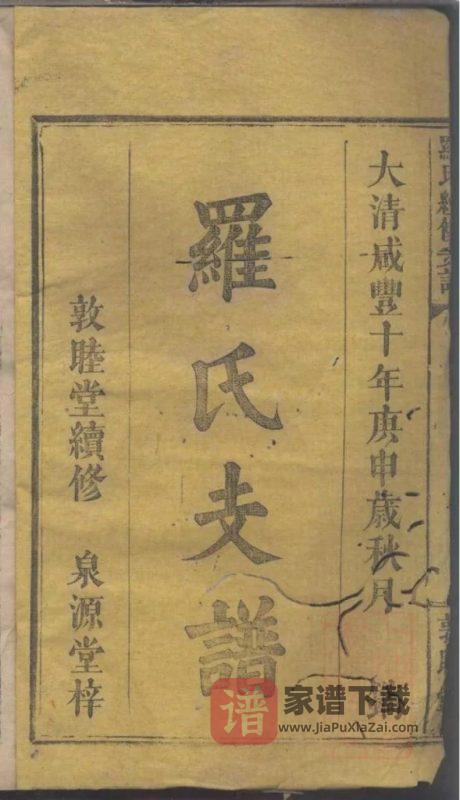 大清咸豐十年庚申歲秋月
羅氏支譜
敦睦堂續修 泉源堂梓
谱
家谱下载
www.JiaPuXiaZai.com